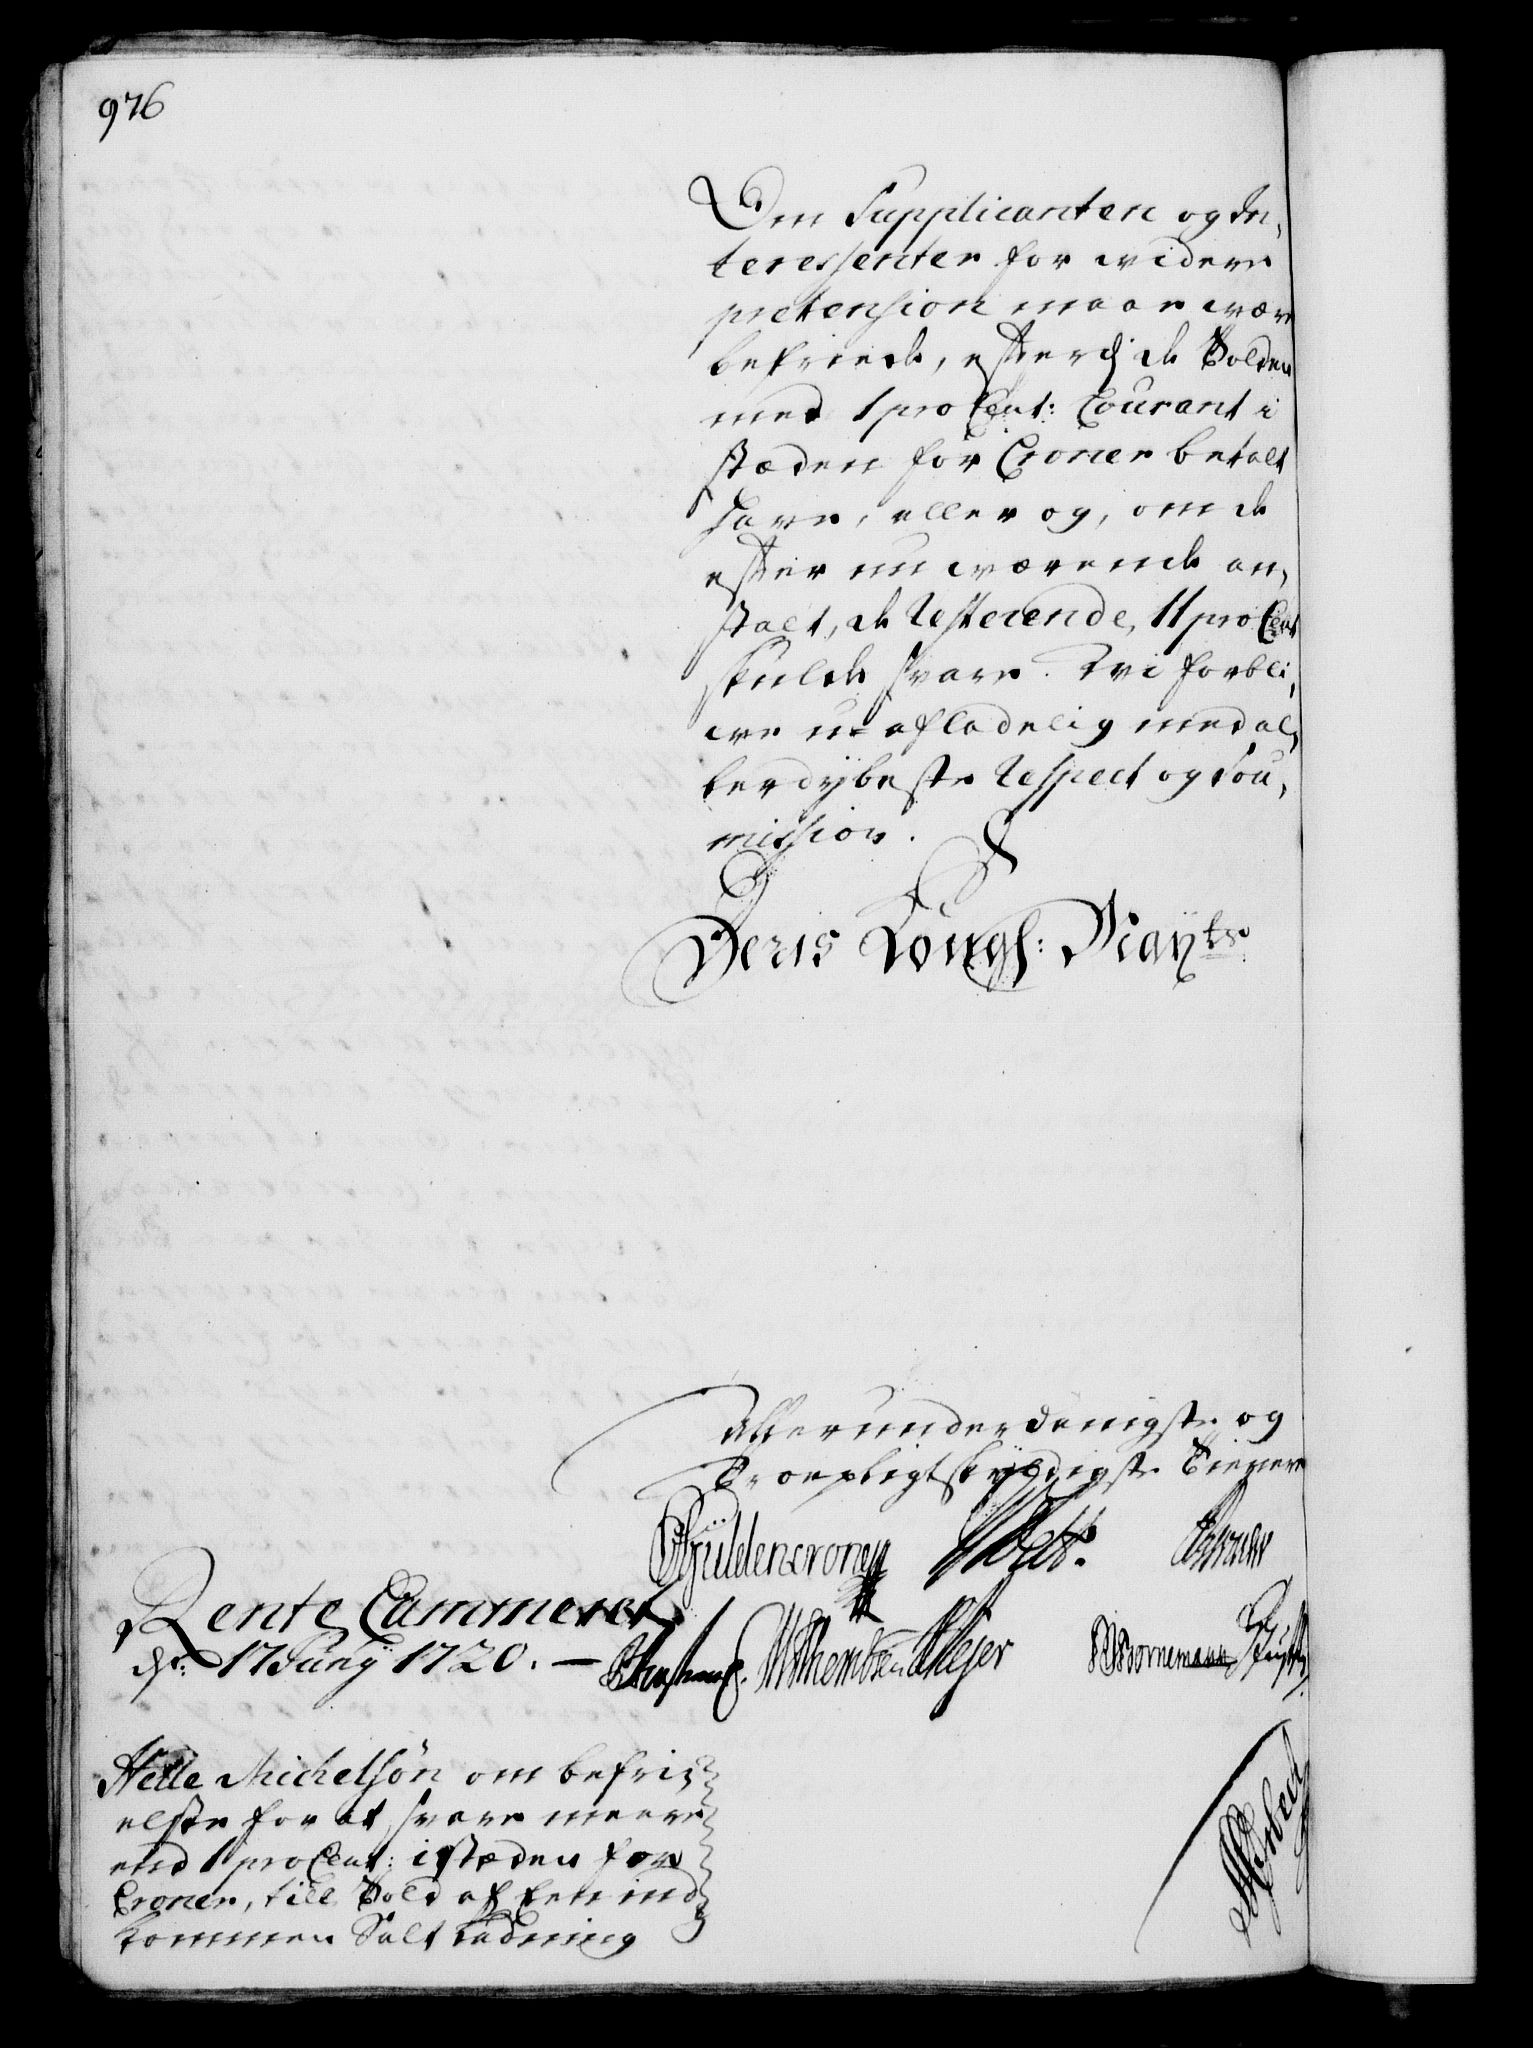 976
Om Supplicanten og In,
teressenter for widere
pretension maae være
befriede, efterdj de Tolden
med 1 pro Cent: Courant i
stæden for Croner betalt
haver, eller og, om de
efter nu værende an,
stalt, de Resterende, 11 pro Cent
skulde svare. Wi forbli,
ve u-afladelig med al,
lerdybeste Respect og Sou,
mission.
Deris Kongl: Mayts
Allerunderdanigste og
Troepligtskyldigste Tienere
CGüldencrone
Rente Cammeret
dn: 17 Junij 1720. —
Wilhembsen Meyer Bornemann
Helle Michelsön om befri,
else for at svare meere
end 1 pro Cent: istæden for
Croner, till Told af een ind
kommen Salt Ladning